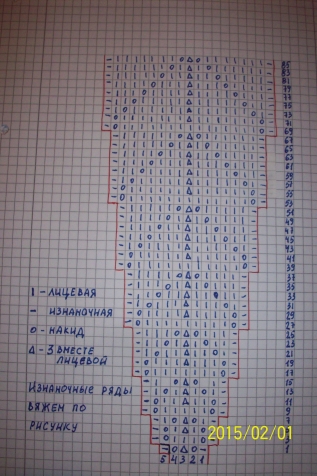 85
83
81
79
77
75
73
71
69
67
65
63
61
59
57
55
53
51
49
47
45
43
41
39
37
35
33
31
29
27
25
23
21
19
17
15
13
11
9
7
5
3
1
I - ЛИЦЕВАЯ
— - ИЗНАНОЧНАЯ
О - НАКИД
Δ - 3 ВМЕСТЕ
ЛИЦЕВОЙ
ИЗНАНОЧНЫЕ РЯДЫ
ВЯЖЕМ ПО
РИСУНКУ
5 4 3 2 1
2015/02/01